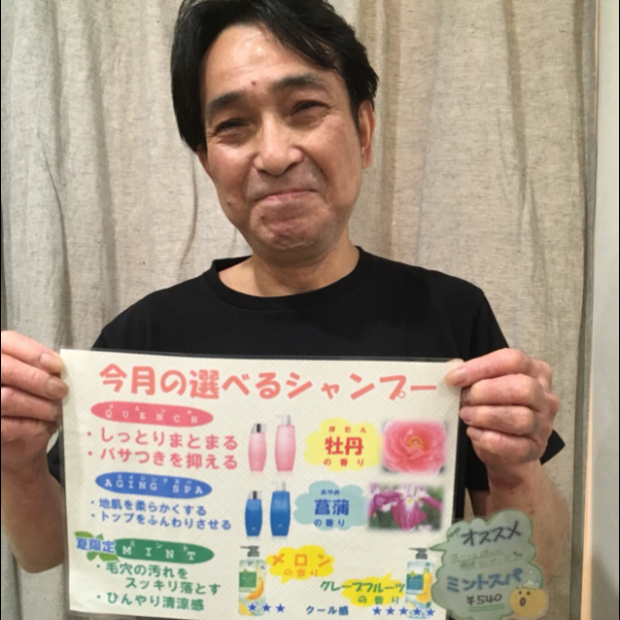 今月の選べるシャンプー
QUENCH
・しっとりまとまる
・パサつきを抑える
ぼたん
牡丹
の香り
エイジングスパ
AGING SPA
・地肌を柔らかくする
・トップをふんわりさせる
あやめ
菖蒲
の香り
夏限定
MINT
・毛穴の汚れを
スッキリ落とす
・ひんやり清涼感
メロン
の香り
グレープフルーツ
の香り
★★★ クール感 ★★★★★
オススメ
ミントスパ
¥540